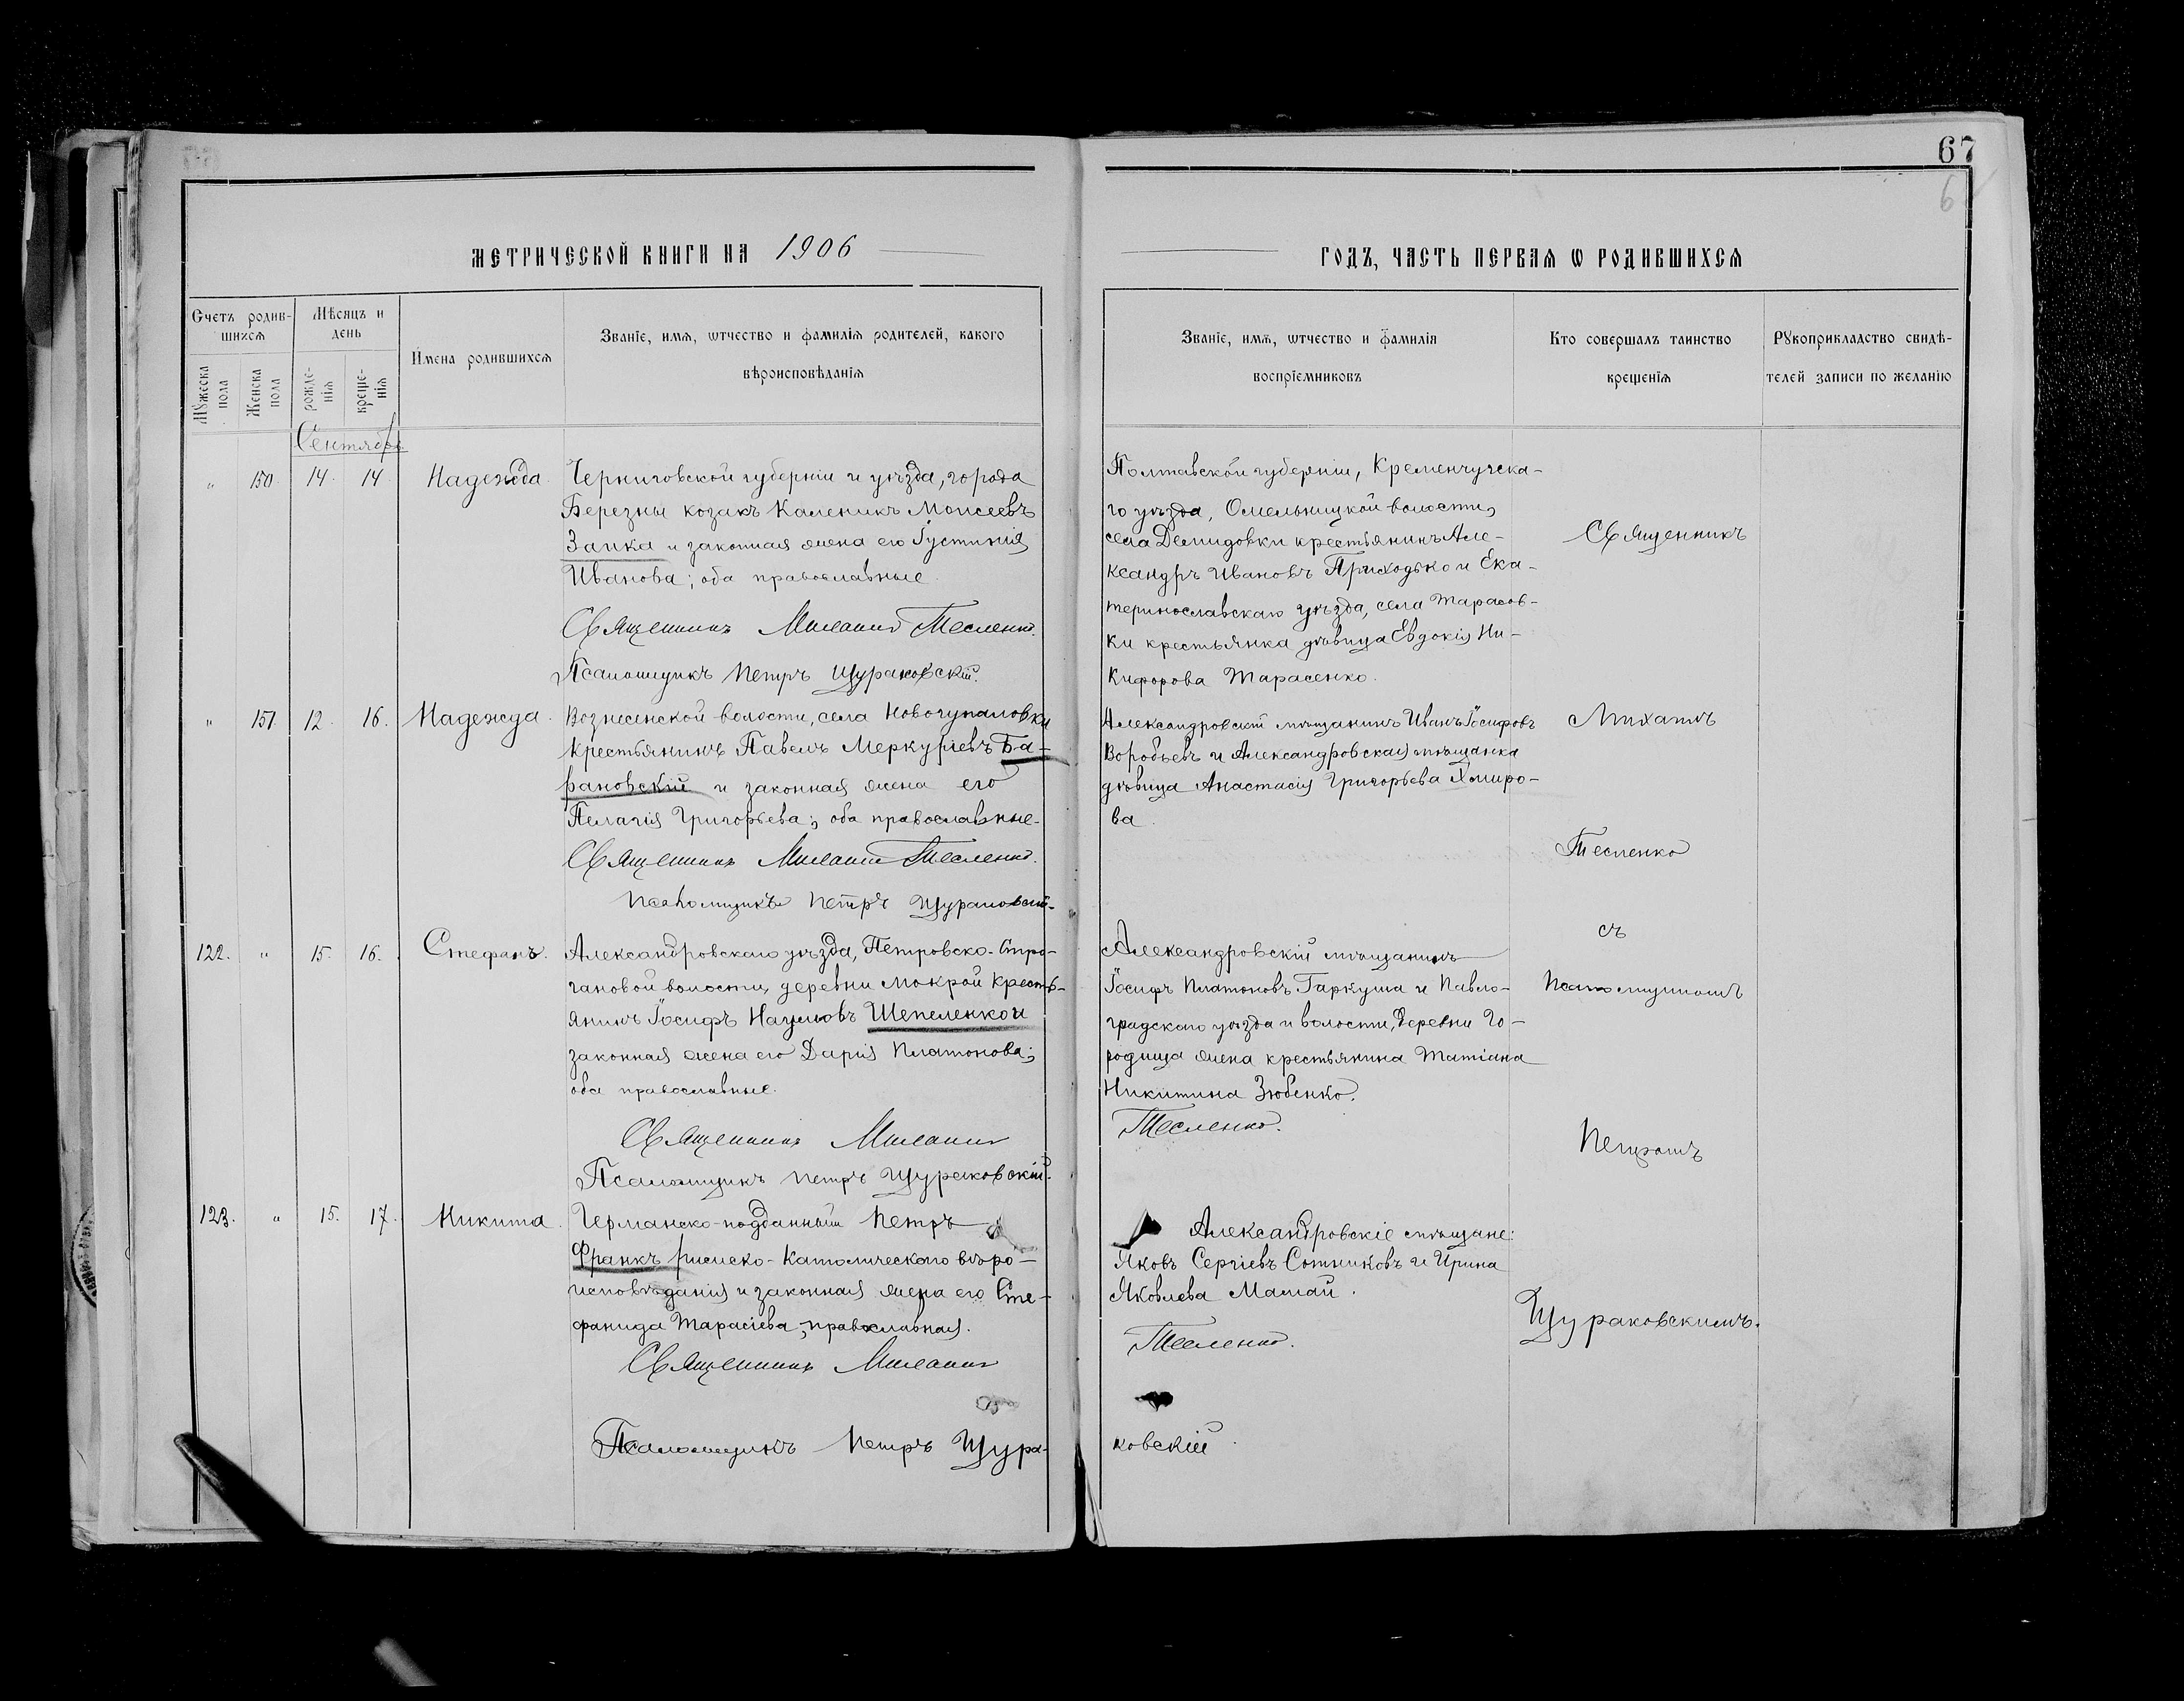 67
6
МЕТРИЧЕСКОЙ КНИГИ НА 1906
ГОДЪ, ЧАСТЬ ПЕРВАѦ Ѡ РОДИВШИХСѦ
Счетъ родив-
шихсѧ
Мѣсяцъ и
день
Мꙋжеска
пола
Женска
пола
рожде-
нїѧ
креще-
нїѧ
Имена родившихсѧ
Званїе, имѧ, ѡтчество и фамилїѧ родителей, какого
вѣроисповѣданїѧ
Званїе, имѧ, ѡтчество и фамилїѧ
воспрїемниковъ
Кто совершалъ таинство
крещенїѧ
Рꙋкоприкладство свидѣ-
телей записи по желанїю
Сентябрь
" 150 14. 14 Надежда.
Черниговской губерніи и уѣзда, города
Березны козакъ Каленикъ Моисеевъ
Заика и законная жена его Іустинія
Иванова; оба православные.
Священникъ Михаилъ Тесленко.
Псаломщикъ Петръ Щураковскій.
Полтавской губерніи, Кременчугска-
го уѣзда, Омельницкой волости,
села Демидовки крестьянинъ Але-
ксандръ Ивановъ Приходько и Ека-
теринославскаго уѣзда, села Тарасов-
ки крестьянка дѣвица Евдокія Ни-
кифорова Тарасенко.
Священникъ
" 151 12. 16. Надежда.
Вознесенской волости, села Новогупаловки
крестьянинъ Павелъ Меркуріевъ Ба-
рановскій и законная жена его
Пелагія Григорьева; оба православные.
Священникъ Михаилъ Тесленко.
Псаломщикъ Петръ Щураковскій.
Александровскій мѣщанинъ Иванъ Іосифовъ
Воробьевъ и Александровская мѣщанка
дѣвица Анастасія Григорьева Хмиро-
ва.
Михаилъ
Тесленко
122. " 15. 16. Стефанъ.
Александровскаго уѣзда, Петровско-Стро-
гановой волости, деревни Мокрой кресть-
янинъ Іосифъ Наумовъ Шепеленко и
законная жена его Дарія Платонова;
оба православные.
Священникъ Михаилъ
Псаломщикъ Петръ Щураковскій.
Александровскій мѣщанинъ
Іосифъ Платоновъ Гаркуша и Павло-
градскаго уѣзда и волости, деревни Го-
родища жена крестьянина Татіана
Никитина Зюбенко.
Тесленко.
съ
Псаломщикомъ
Петромъ
123. " 15. 17. Никита.
Германско-подданный Петръ
Франкъ римско-католическаго вѣро-
исповѣданія и законная жена его Сте-
фанида Тарасіева, православная.
Священникъ Михаилъ
Псаломщикъ Петръ Щура-
Александровскіе мѣщане:
Яковъ Сергіевъ Сотниковъ и Ирина
Яковлева Мамай.
Тесленко.
ковскій.
Щураковскимъ.